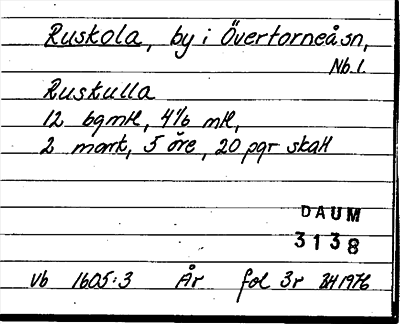 Ruskola, by i Övertorneå sn,
Nb. l.
Ruskulla
12 bgmtl, 4 1/6 mtl,
2 mark, 5 öre, 20 pgr skatt
DAUM
3138
Vb 1605:3 År fol 3r BH 1976